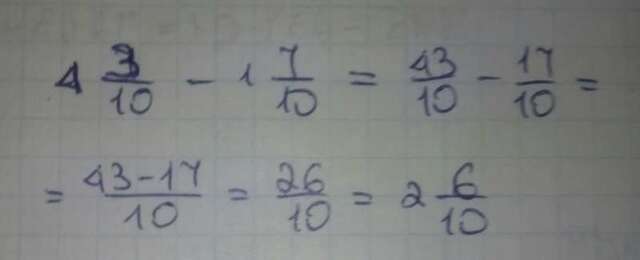 4 3/10 - 1 7/10 = 43/10 - 17/10 =
= 43-17/10 = 26/10 = 2 6/10